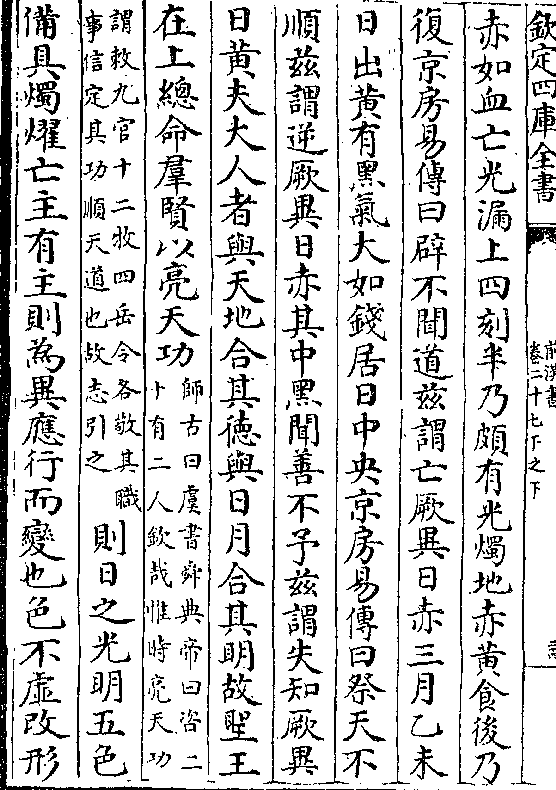 欽定四庫全書
前漢書
卷二十七下之下
赤如血亡光漏上四刻半乃頗有光燭地赤黄食後乃
復京房易傳曰辟不聞道兹謂亡厥異日赤三月乙未
日出黄有黑氣大如錢居日中央京房易傳曰祭天不
順兹謂逆厥異日赤其中黑聞善不予兹謂失知厥異
日黄夫大人者與天地合其徳與日月合其明故聖王
在上總命羣賢以亮天功
師古曰虞書舜典帝曰咨二
十有二人欽哉惟時亮天功
謂敕九官十二牧四岳令各敬其職
事信定其功順天道也故志引之
則日之光明五色
備具燭燿亡主有主則為異應行而變也色不虛改形